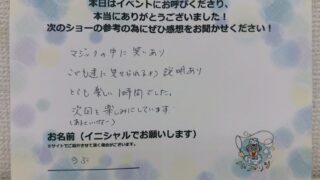 本日はイベントにお呼びくださり、
本当にありがとうございました！
次のショーの参考の為にぜひ感想をお聞かせください！
マジックの中に笑いあり
こども達に見せられるよう説明あり
とても楽しい1時間でした。
次回を楽しみにしています
お名前（イニシャルでお願いします）
※サイトでご紹介させて頂く場合がございます。